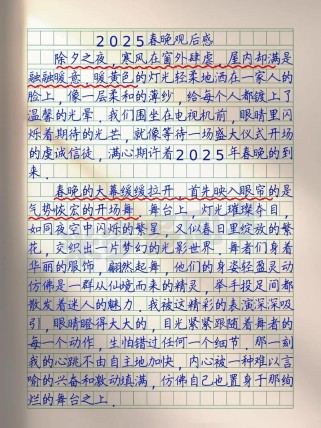 2025春晚观后感
除夕之夜，寒风在窗外肆虐，屋内却满是
融融暖意，暖黄色的灯光轻柔地洒在一家人的
脸上，像一层柔和的薄纱，给每个人都镀上了
温馨的光晕。我们围坐在电视机前，眼睛里闪
烁着期待的光芒，就像等待一场盛大仪式开场
的虔诚信徒，满心期许着2025年春晚的到
来。
春晚的大幕缓缓拉开，首先映入眼帘的是
气势恢宏的开场舞。舞台上，灯光璀璨夺目，
如同夜空中闪烁的繁星，又似春日里绽放的繁
花，交织出一片梦幻的光影世界。舞者们身着
华丽的服饰，翩然起舞，他们的身姿轻盈灵动
仿佛是一群从仙境而来的精灵，举手投足间都
散发着迷人的魅力。我被这精彩的表演深深吸
引，眼睛瞪得大大的，目光紧紧跟随着舞者的
每一个动作，生怕错过任何一个细节。那一刻
我的心跳不由自主地加快，内心被一种难以言
喻的兴奋和激动填满，仿佛自己也置身于那绚
烂的舞台之上。